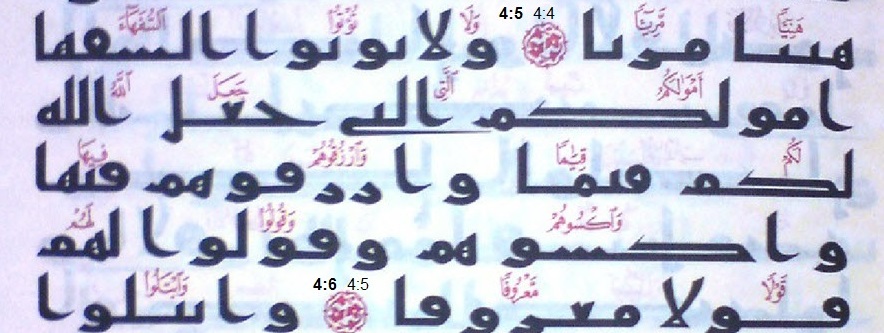 4:5 4:4
هَنِيٓـًٔا مَّرِيٓـًٔا وَلَا تُؤْتُوا۟ ٱلسُّفَهَآءَ
هنيا مريا ولا توتوا السفها
أَمْوَٰلَكُمُ ٱلَّتِى جَعَلَ ٱللَّهُ
امولكم التي جعل الله
لَكُمْ قِيَٰمًا وَٱرْزُقُوهُمْ فِيهَا
لكم قيما وارزقوهم فيها
وَٱكْسُوهُمْ وَقُولُوا۟ لَهُمْ
واكسوهم وقولوا لهم
4:6 4:5
قَوْلًا مَّعْرُوفًا وَٱبْتَلُوا۟
قولا معروفا وابتلوا